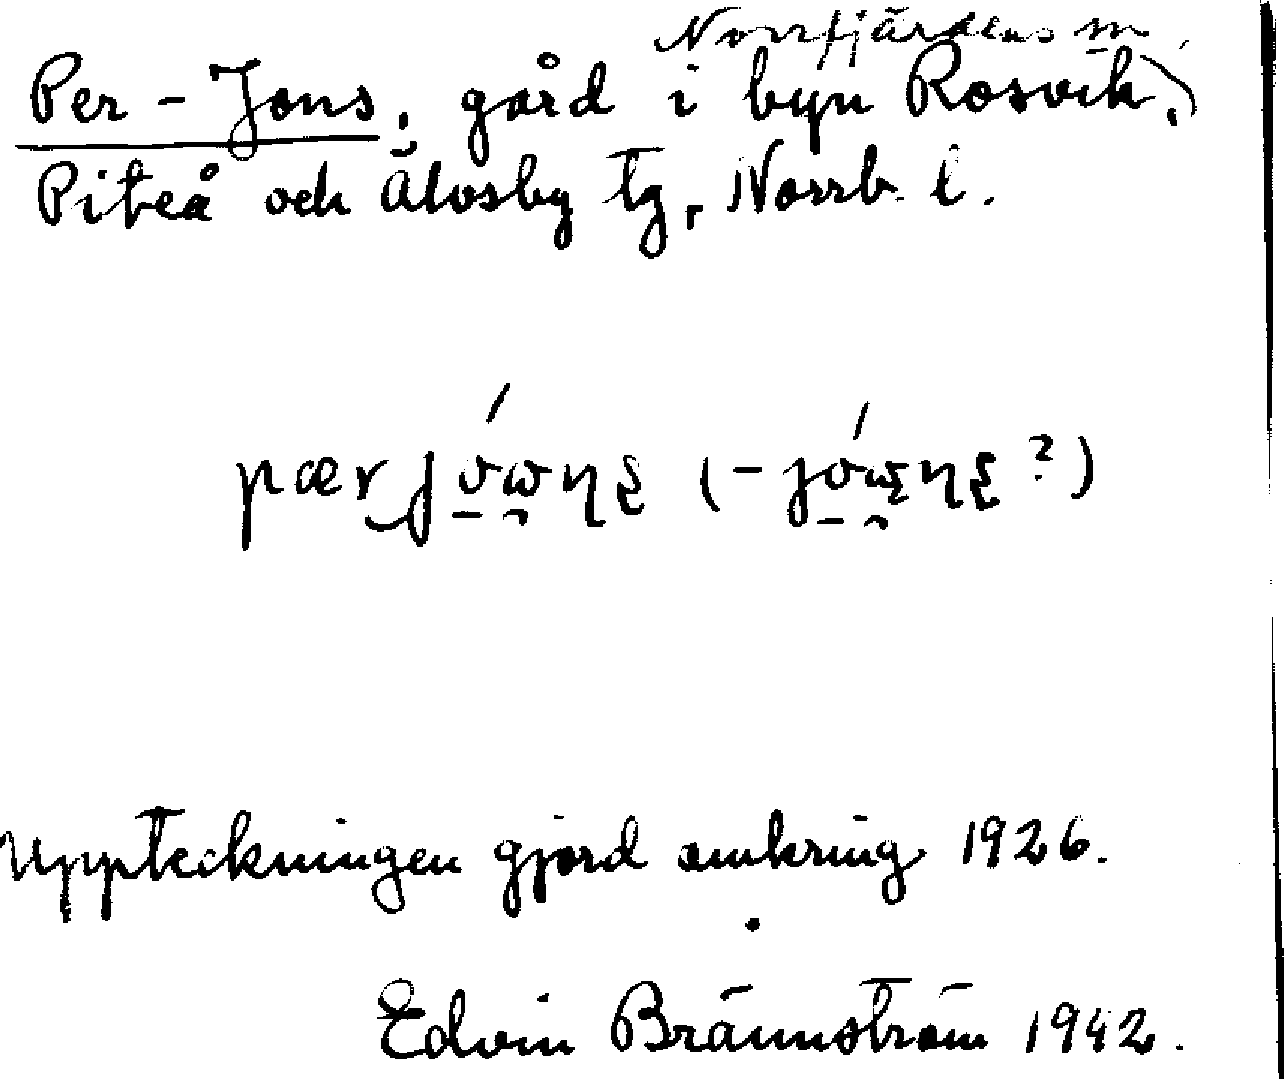 Norrfjärdens sn,
Per-Jons, gård i byn Rosvik,
Piteå och Älvsby tg, Norrb. l.
Uppteckningen gjord omkring 1926.
Edvin Brännström 1942.